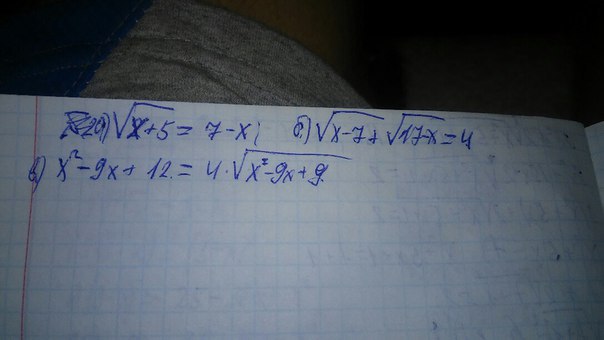 а) √x+5 = 7-x; б) √x-7 + √17-x = 4
в) x²-9x+12 = 4·√x²-9x+9